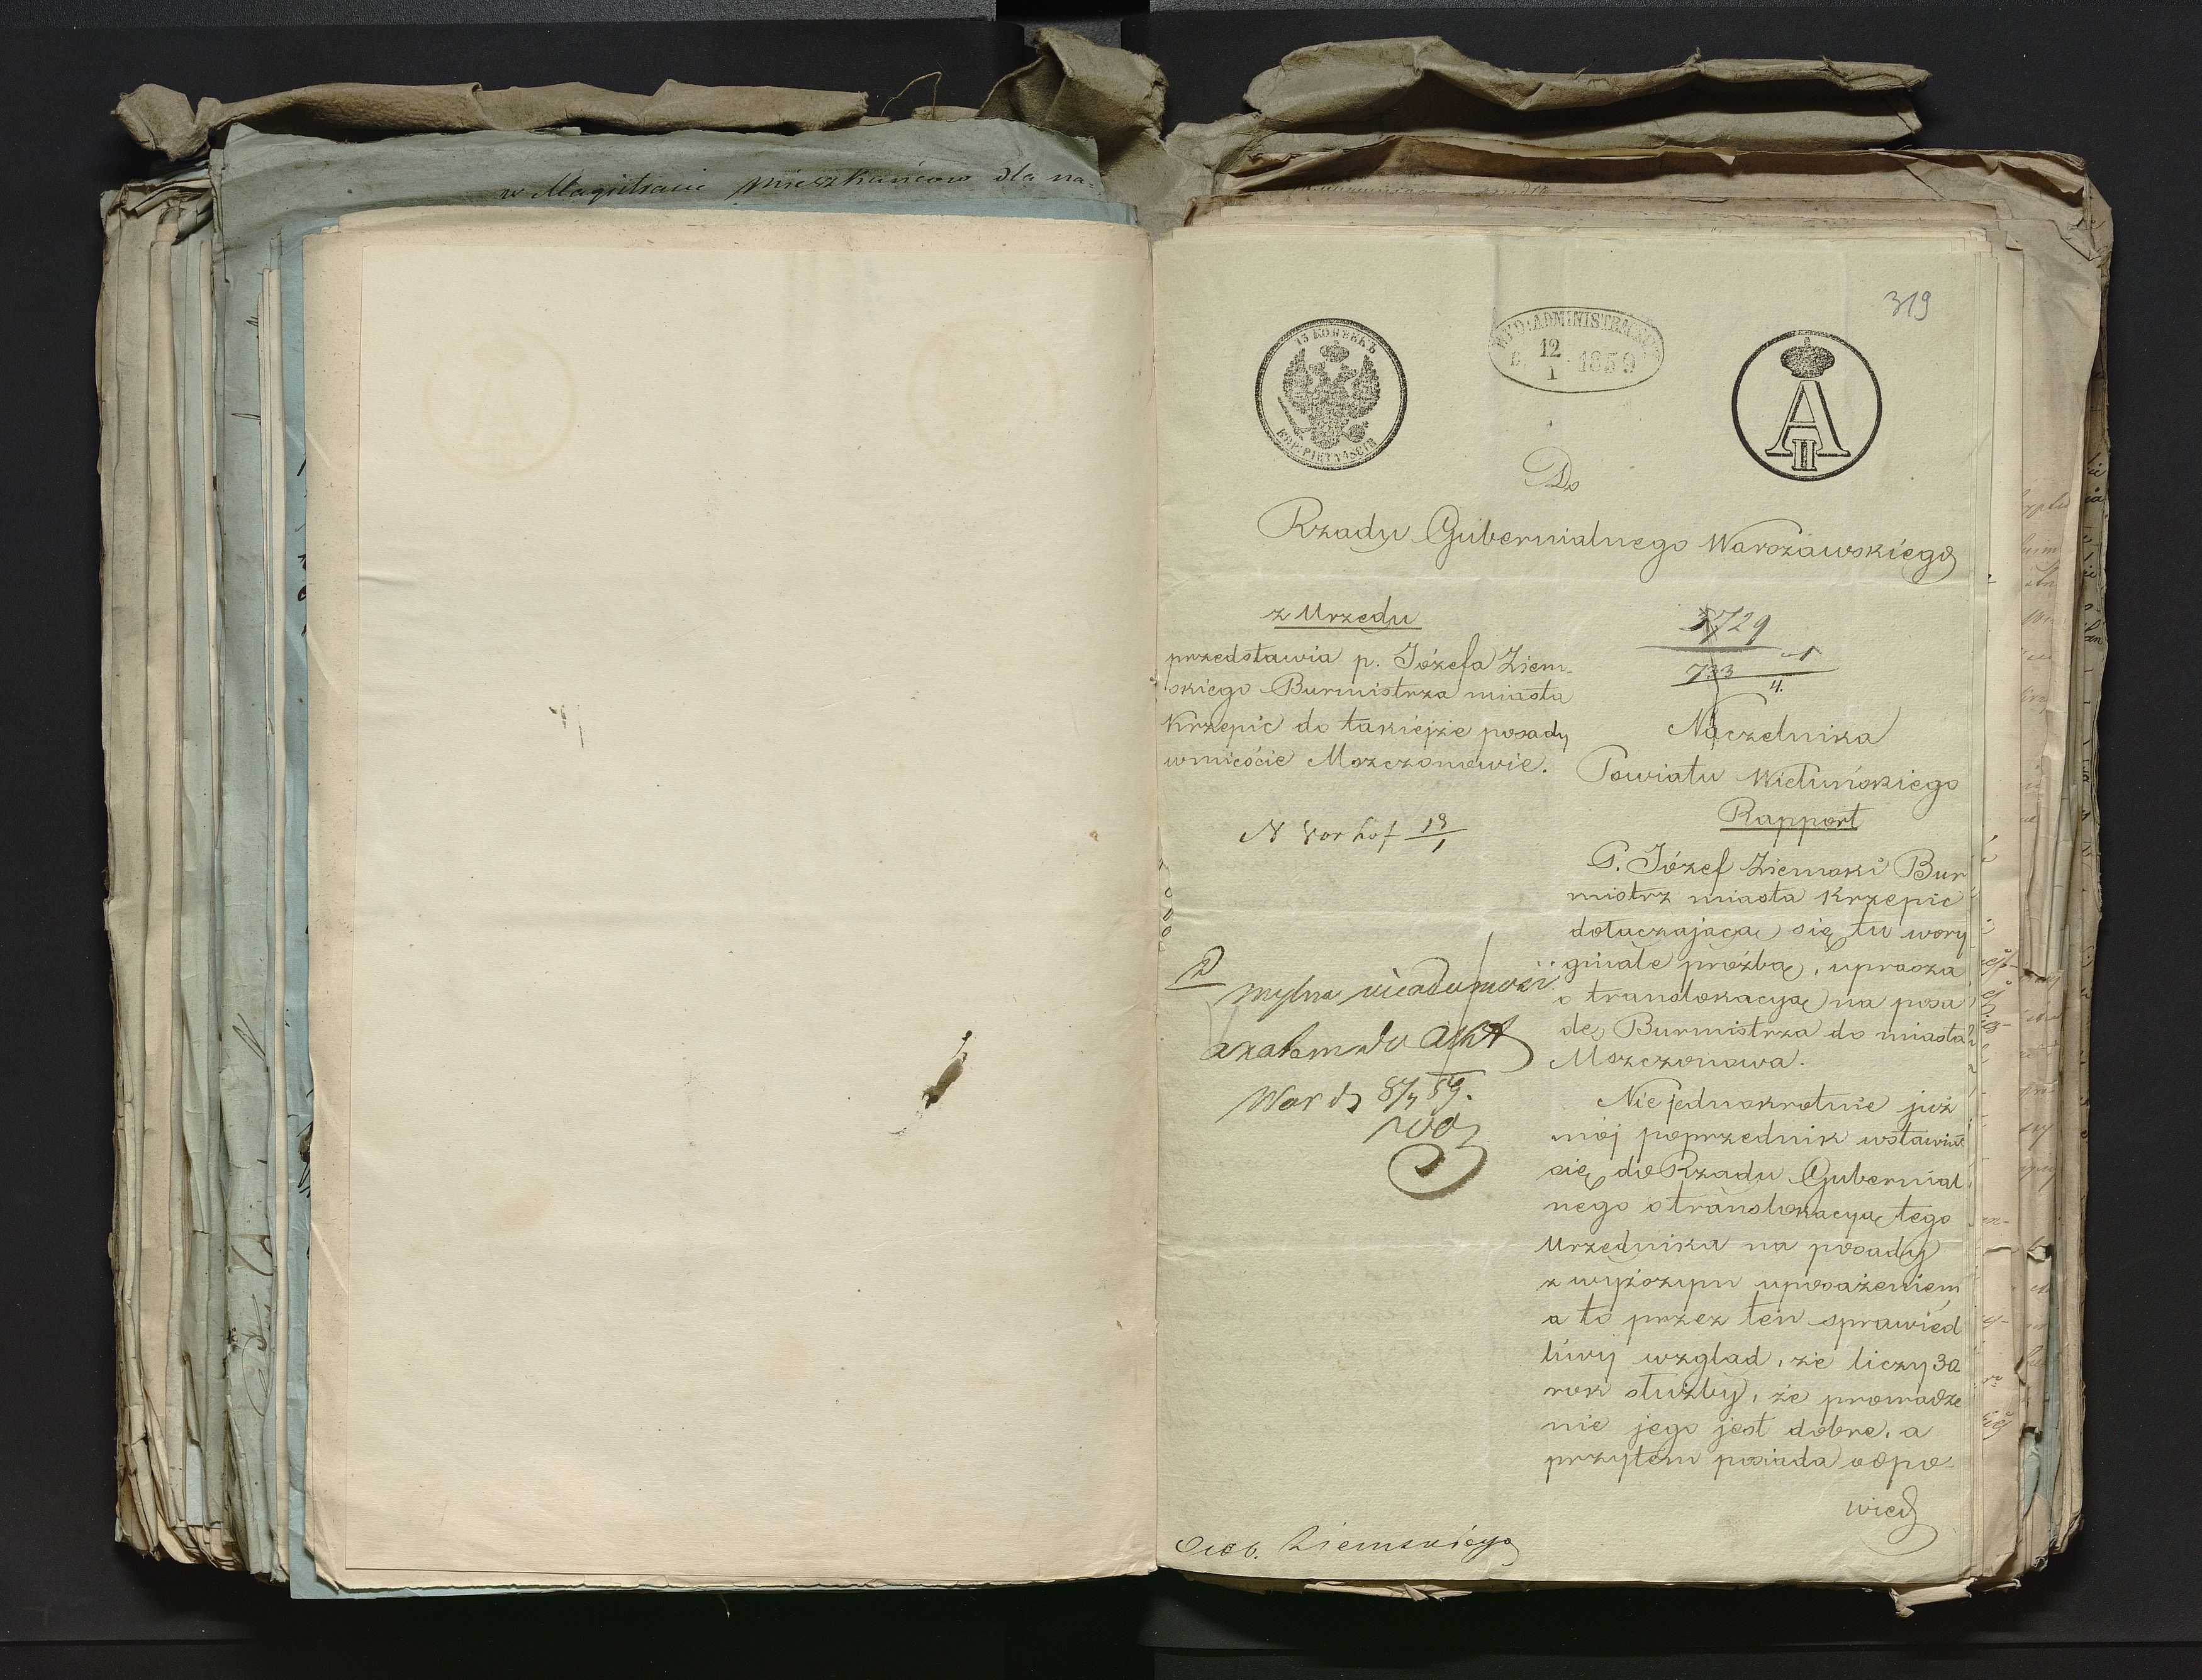 w Magistracie mieszkańców dla na-
319
15 KOPEEKЪ
KOP: PIETNAŚCIE
WYD: ADMINISTRACYI
D. 12/1 1859
A
II
Do
Rządu Gubernialnego Warszawskiego
z Urzędu
przedstawia p. Józefa Ziem-
skiego Burmistrza miasta
Krzepic do takiejże posady
w mieście Mszczonowie.
3729
733
4.
Naczelnika
Powiatu Wieluńskiego
Rapport
P. Józef Ziemski Bur
mistrz miasta Krzepic
dołączającą się tu wory
ginale prożbą, uprasza
o translokacyą na posa
dę Burmistrza do miasta
Mszczonowa.
Nie jednokrotnie już
mój poprzednik wstawiał
się do Rządu Gubernial
nego o translokacyą tego
Urzędnika na posadę
z wyższym uposażeniem
a to przez ten sprawied
liwy wzgląd, że liczy 30
rok służby, że prowadze
nie jego jest dobre, a
przytem posiada odpo-
wied
19/1
mylna wiadomość
a zatem do Akt
War d
Osob. Ziemskiego